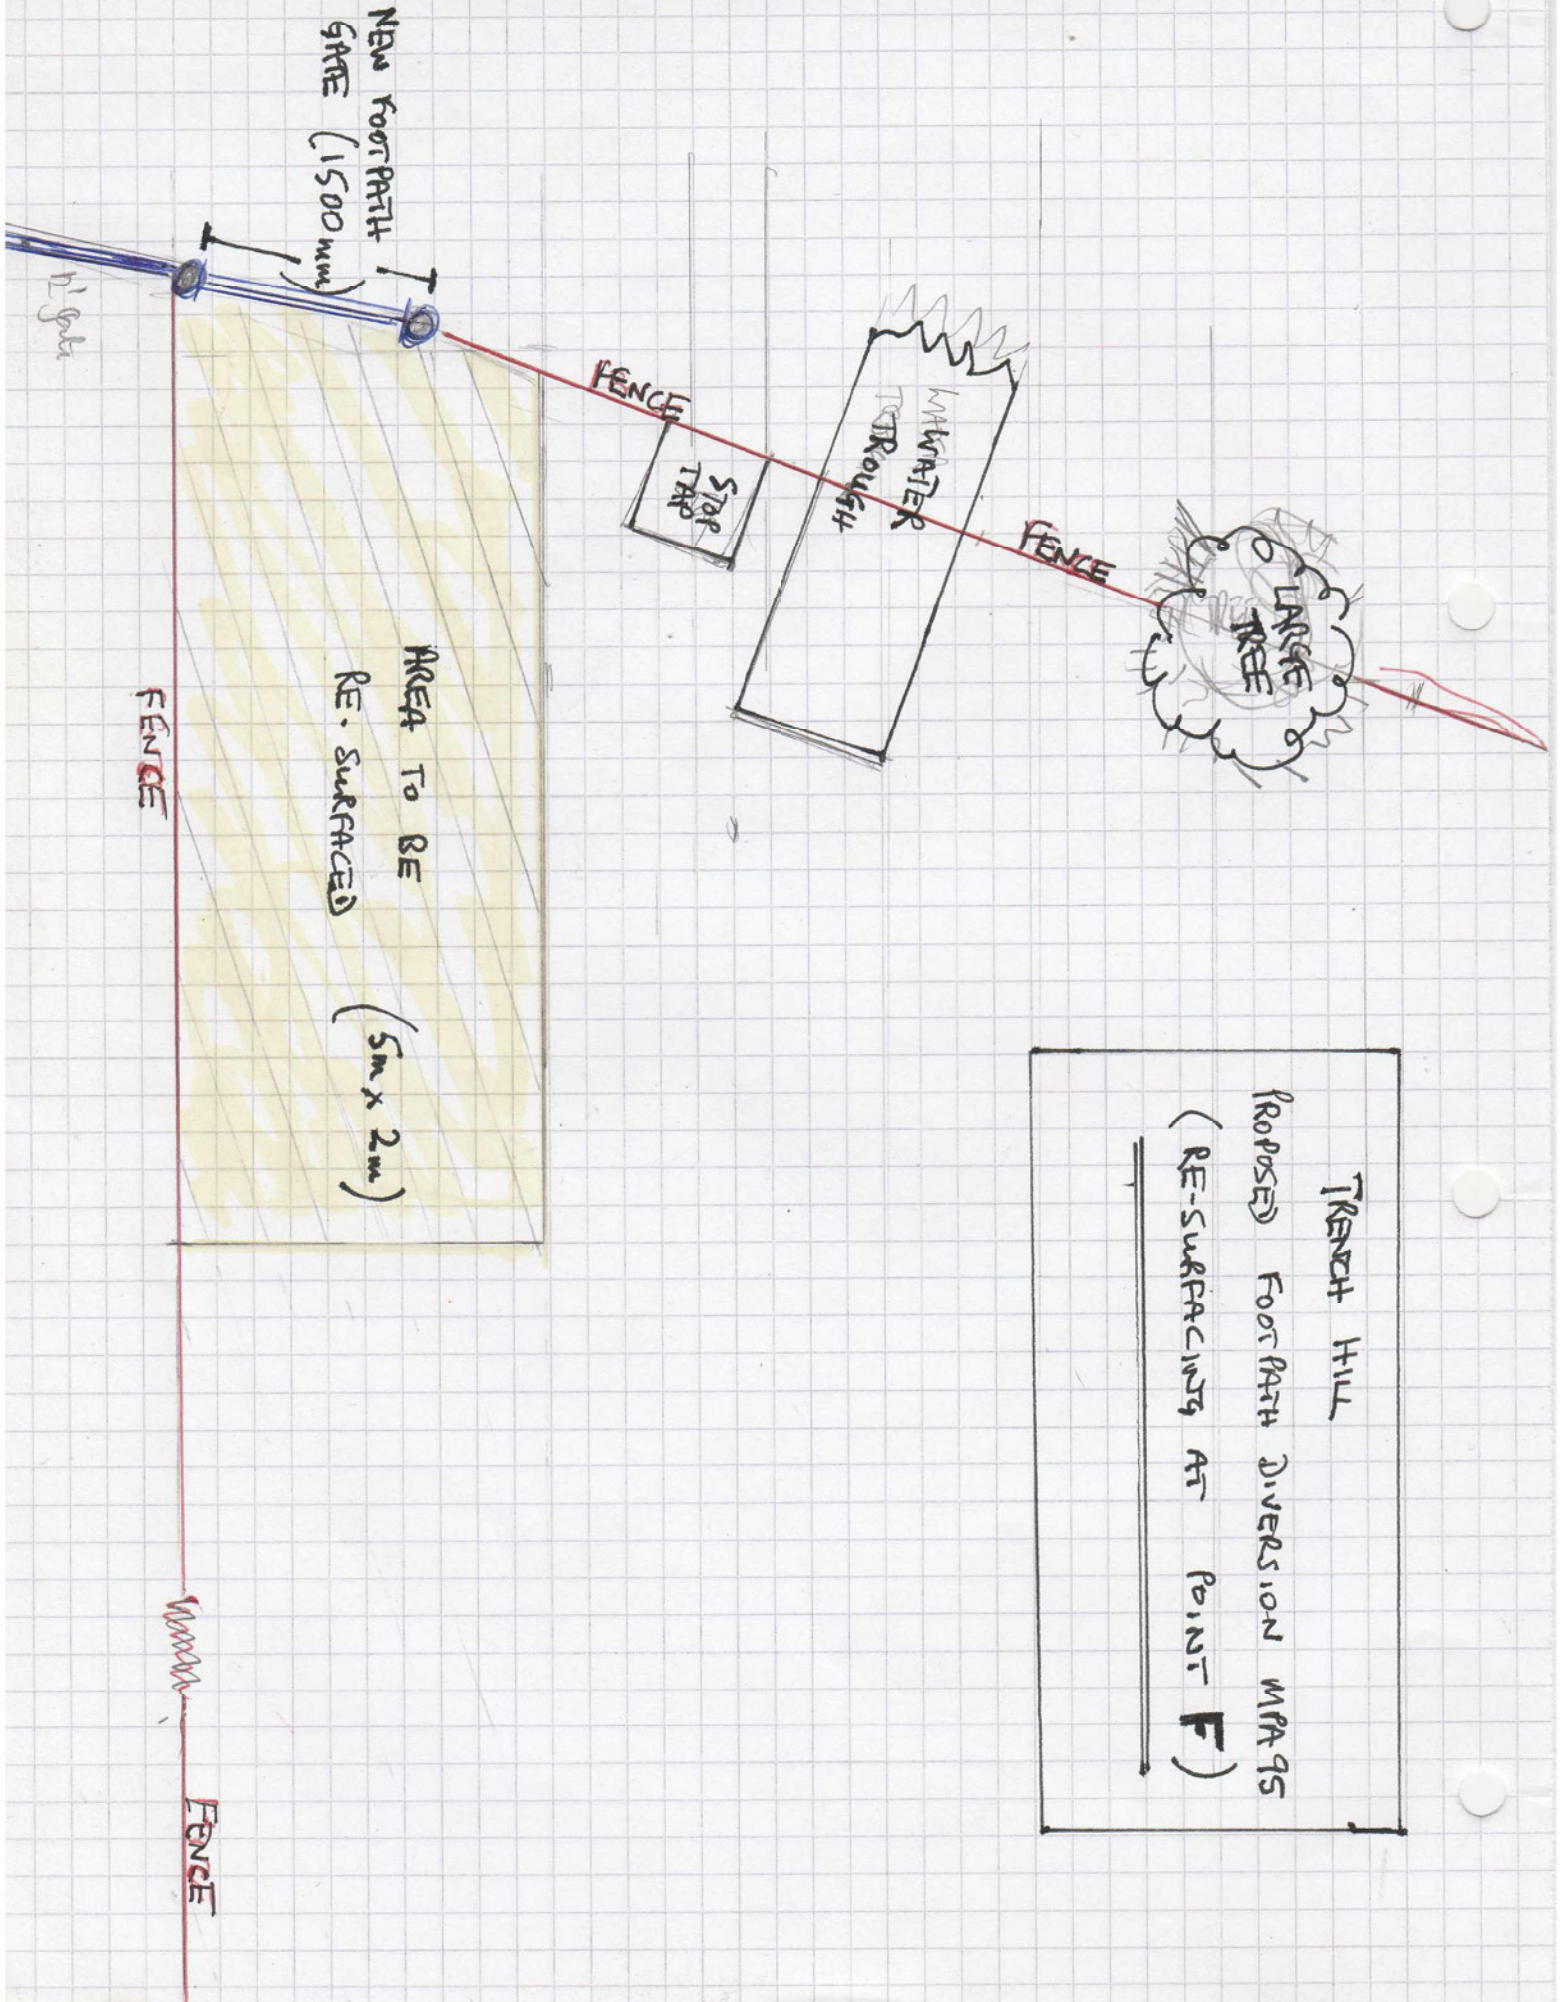 TRENCH HILL
PROPOSED FOOTPATH DIVERSION MPA95
(RE-SURFACING AT POINT F)
LARGE
TREE
FENCE
WATER
TROUGH
STOP
TAP
FENCE
NEW FOOTPATH
GATE (1500mm)
AREA TO BE
RE-SURFACED
(5m x 2m)
FENCE
FENCE
12' gate